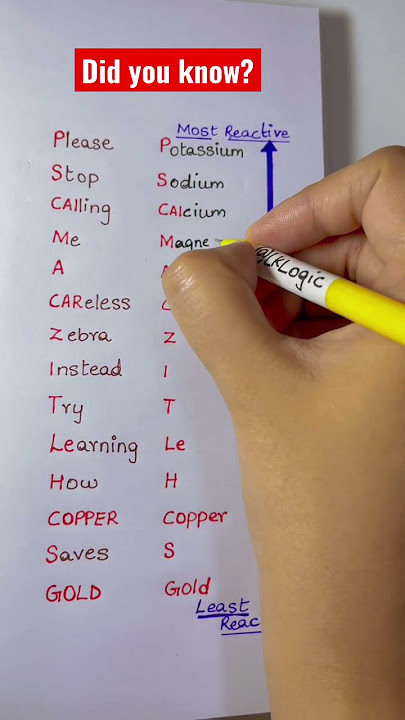 Did you know?
Most Reactive
Please Potassium
Stop Sodium
CAlling CALcium
Me Magne
A
CAReless
Zebra Z
Instead I
Try T
Learning Le
How H
COPPER Copper
Saves S
GOLD Gold
Least
Reac
@LKLogic